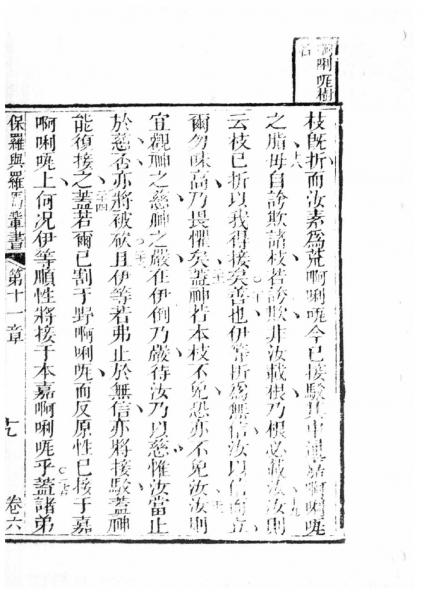 啊唎呢樹名
枝既折而汝素為荒啊唎呢今已接駁其中連嘉啊唎呢
之脂毋自誇欺諸枝若誇欺非汝載根乃根必載汝汝則
云枝已折以我得接矣善也伊等折為無信汝以信而立
爾勿味高乃畏懼矣蓋神若本枝不免恐亦不免汝汝則
宜觀神之慈神之嚴在伊倒乃嚴待汝乃以慈惟汝當止
於慈否亦將被砍且伊等若弗止於無信亦將接駁蓋神
能復接之蓋若爾已割于野啊唎呢而反原性已接于嘉
啊唎呢上何況伊等順性將接于本嘉啊唎呢乎蓋諸弟
保羅與羅馬輩書 第十一章 卷六